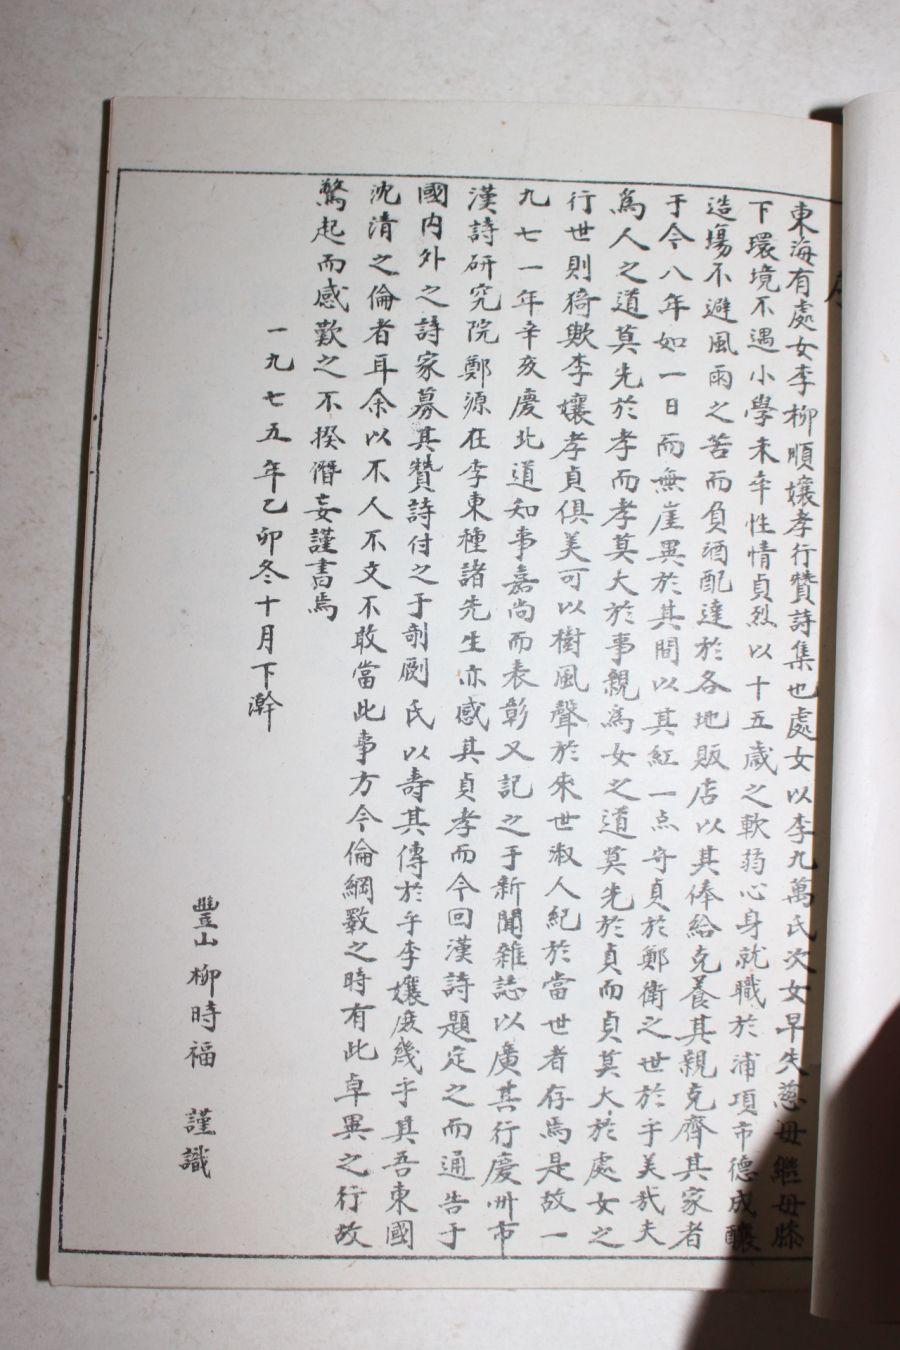 東海有處女李柳順孃孝行贊詩集也處女以李九萬氏次女早失慈母繼母膝
下環境不遇小學未卒性情貞烈以十五歲之軟弱心身就職於浦項市德成釀
造場不避風雨之苦而負酒配達於各地販店以其俸給克養其親克齊其家者
于今八年如一日而無崖異於其間以其紅一点守貞於鄭衛之世於乎美哉夫
爲人之道莫先於孝而孝莫大於事親爲女之道莫先於貞而貞莫大於處女之
行世則猗歟李孃孝貞俱美可以樹風聲於來世淑人紀於當世者存焉是故一
九七一年辛亥慶北道知事嘉尚而表彰又記之于新聞雜誌以廣其行慶州市
漢詩研究院鄭源在李東種諸先生亦感其貞孝而今回漢詩題定之而通告于
國内外之詩家募其贊詩付之于剞劂氏以壽其傳於乎李孃庶幾乎其吾東國
沈清之倫者耳余以不人不文不敢當此事方今倫綱斁之時有此卓異之行故
驚起而感歎之不揆僭妄謹書焉
一九七五年乙卯冬十月下澣
豐山柳時福 謹識